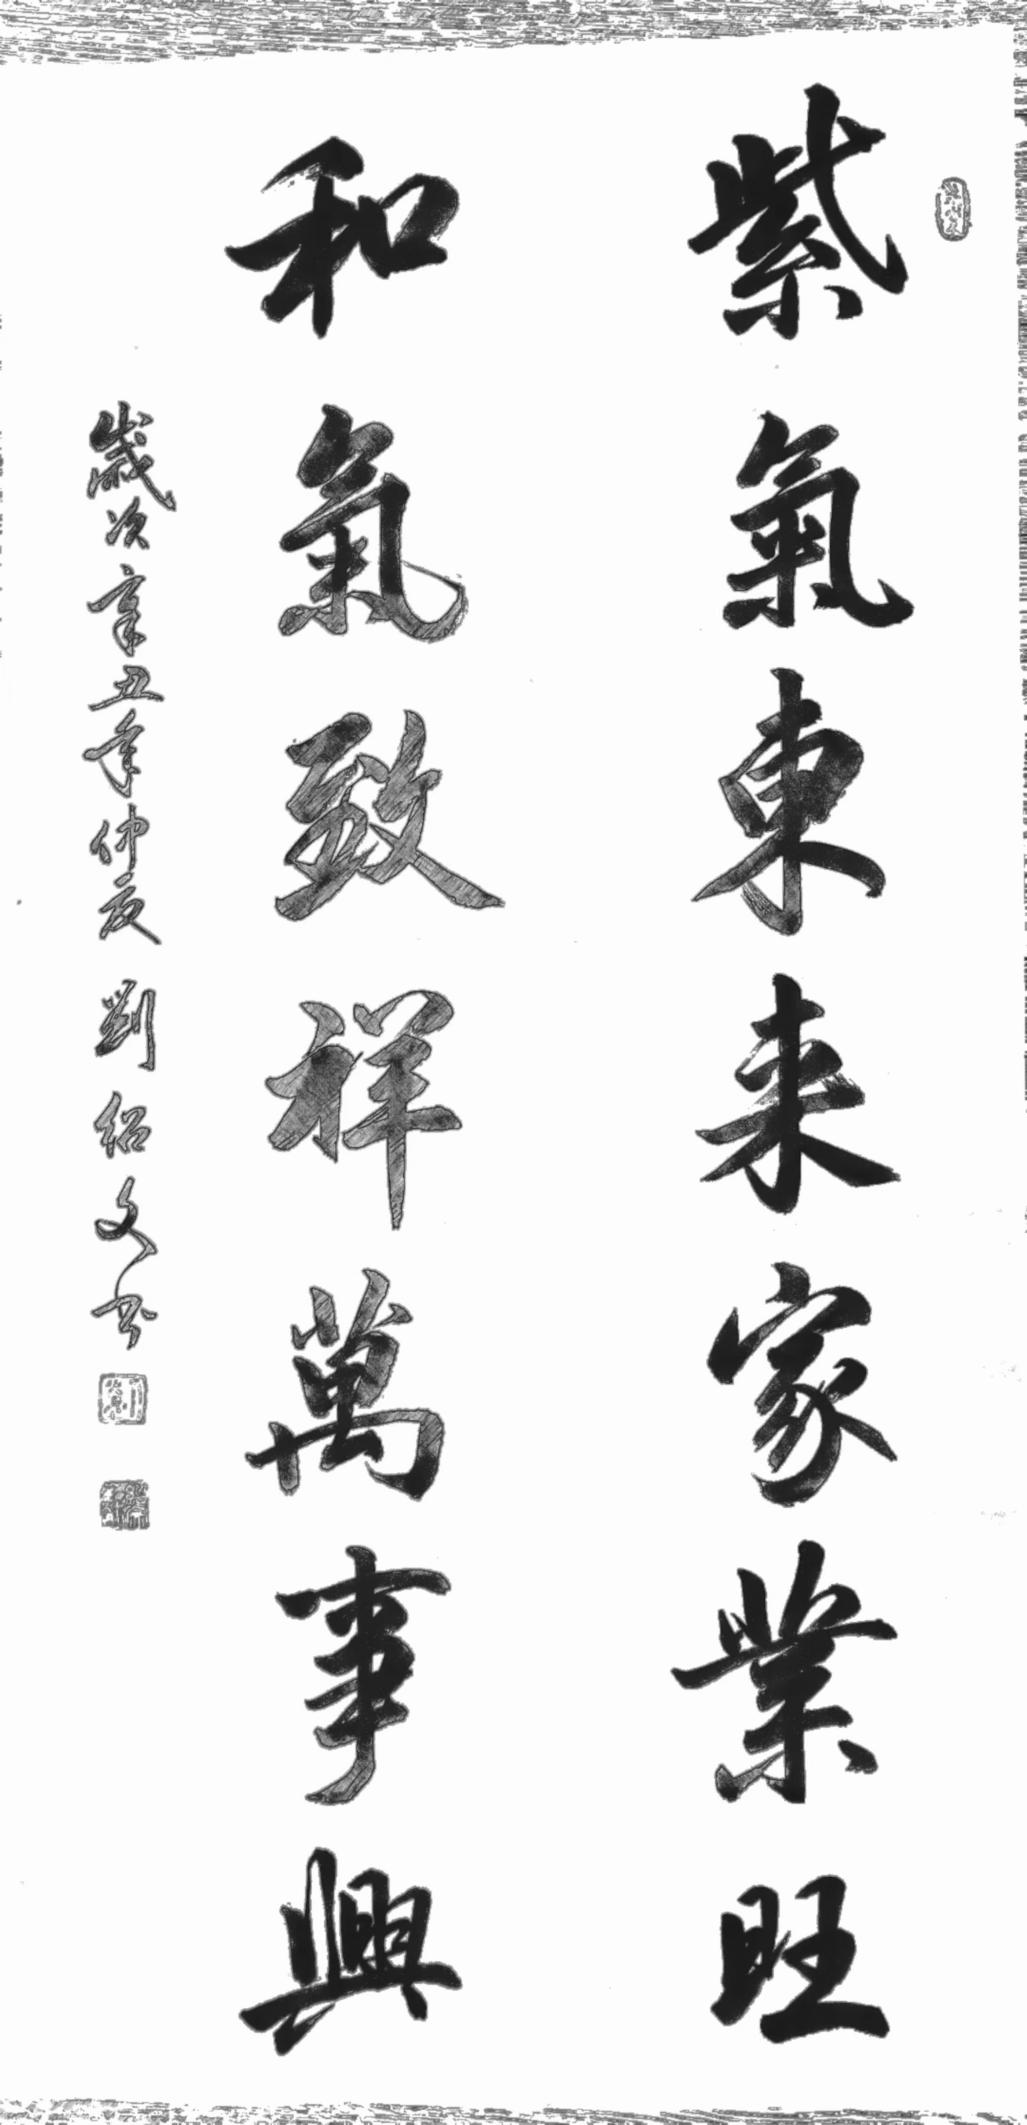 紫氣東来家業旺
和氣致祥萬事興
歲次辛丑年仲夏 劉紹文书